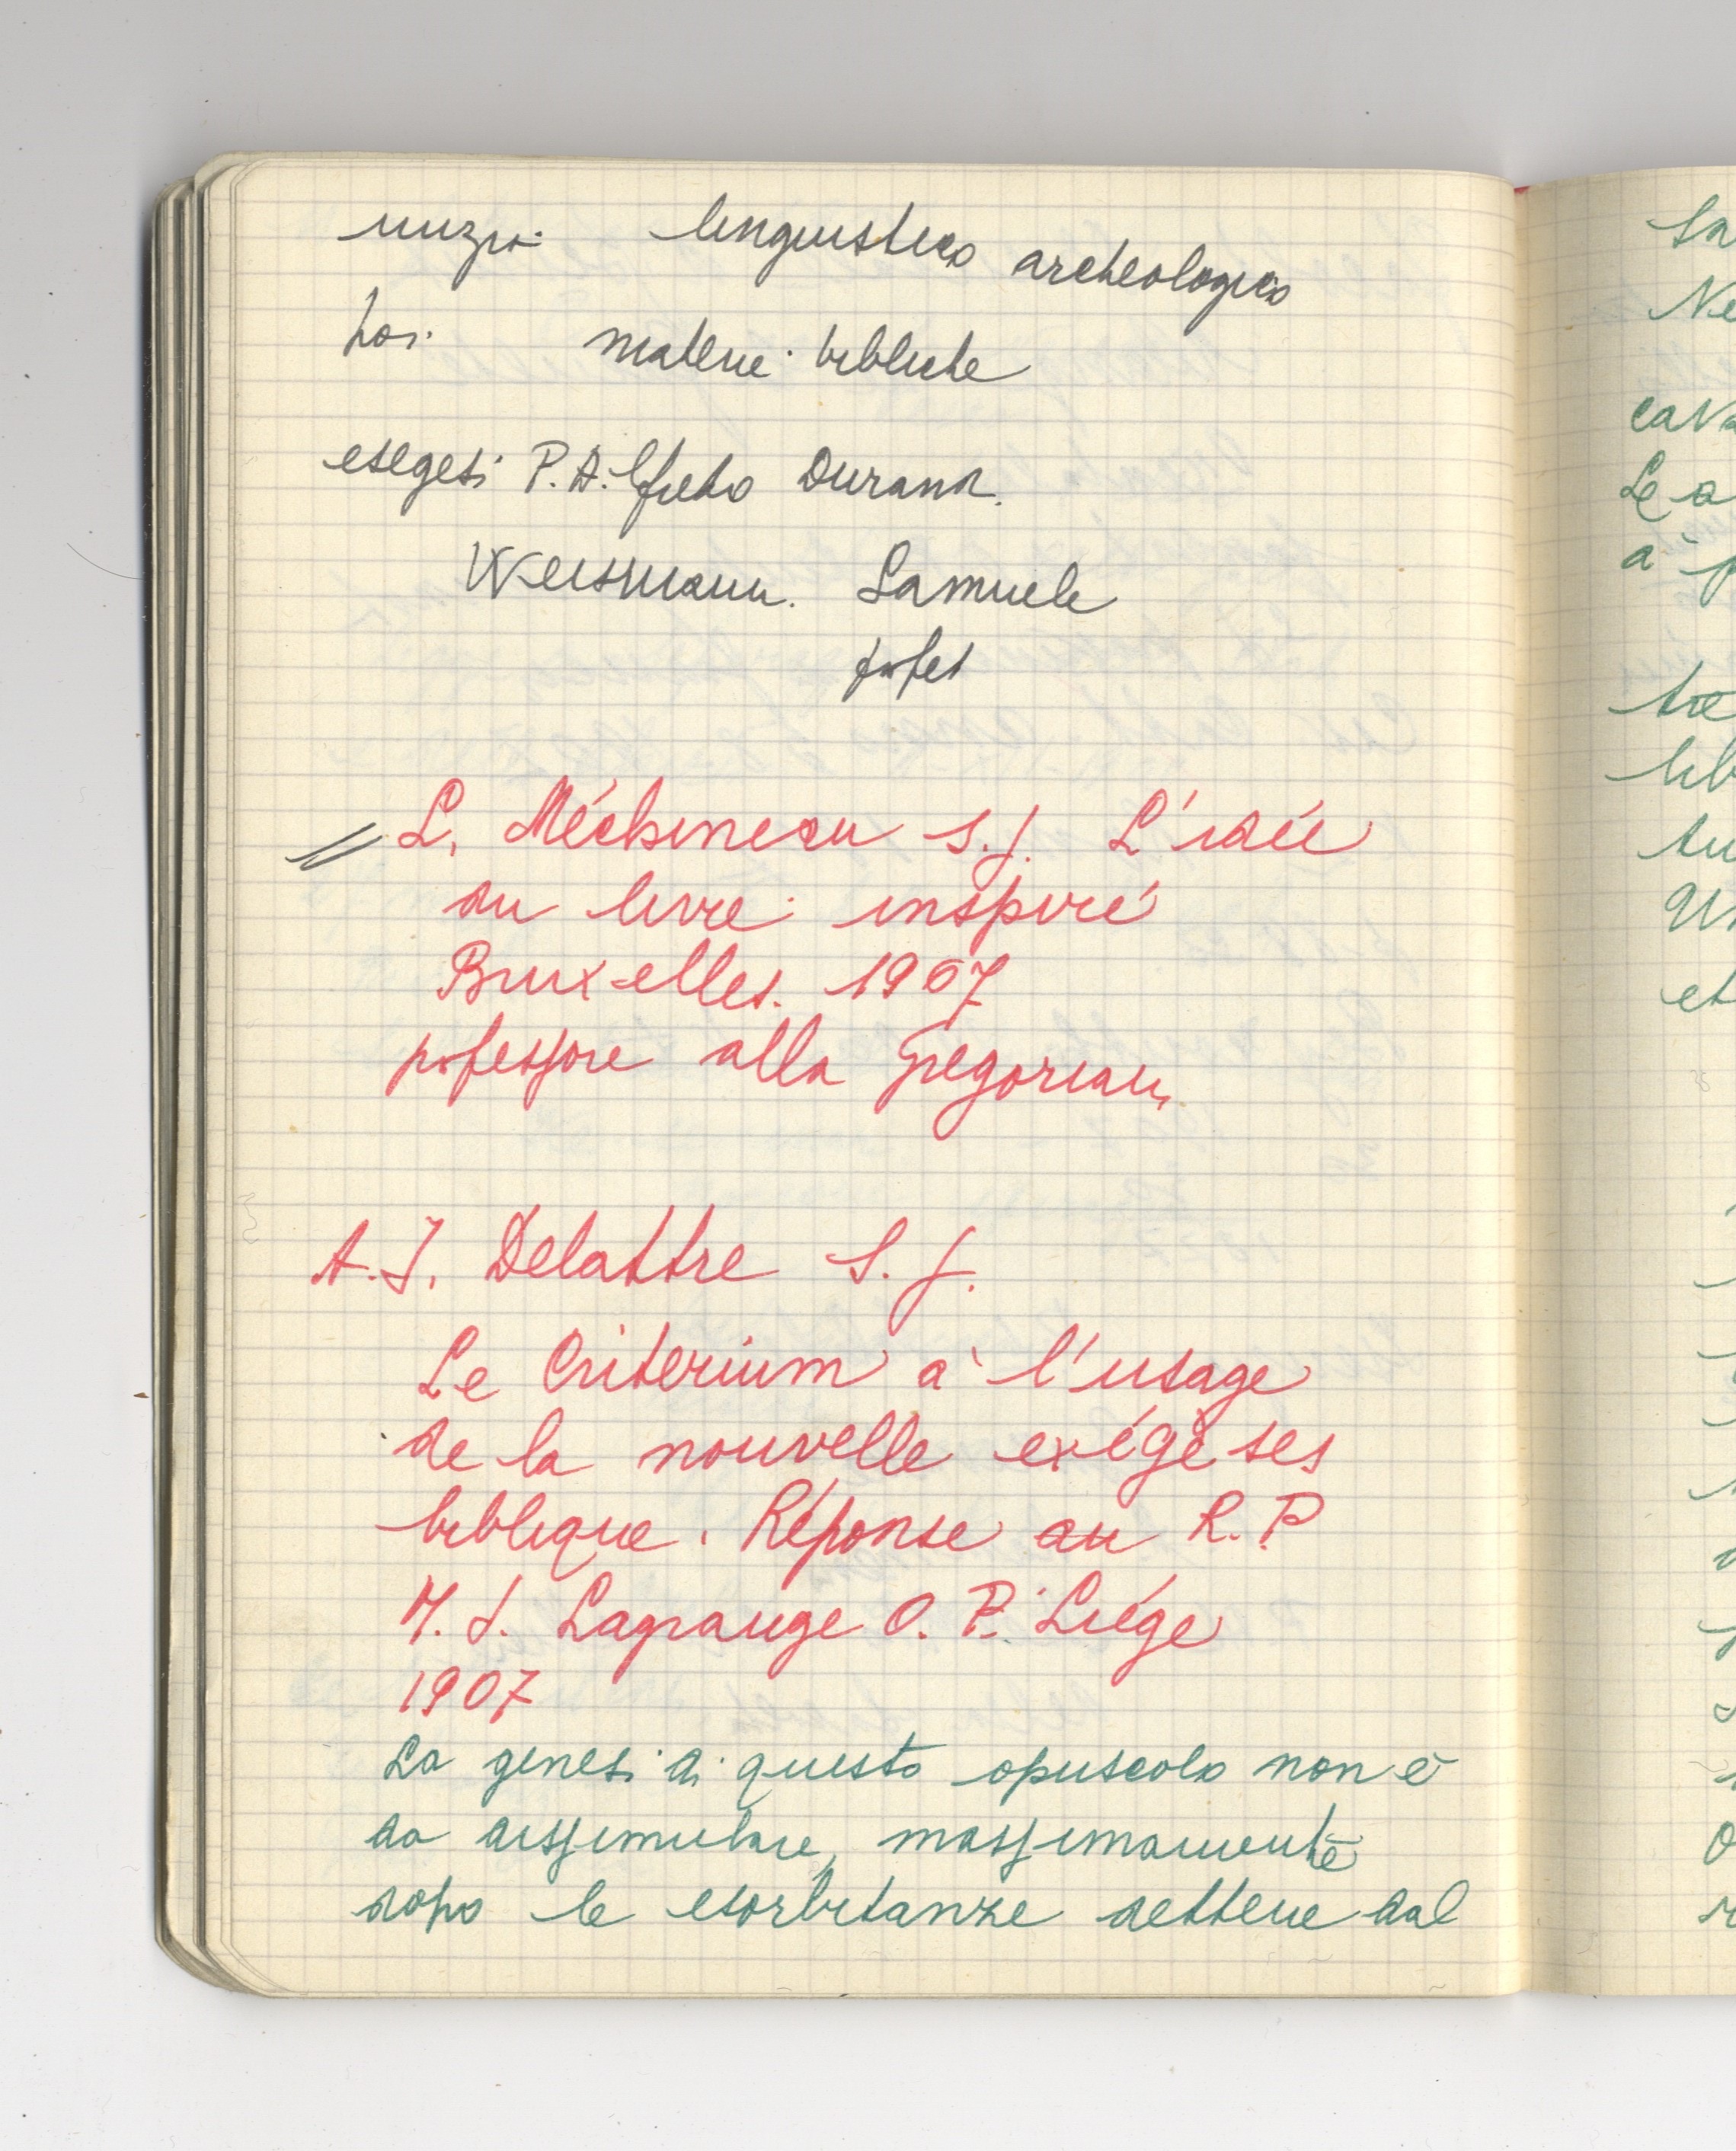 linguistico archeologico
poi materie bibliche
esegesi P. Alfredo Durand.
Weismann. Samuele
profet
L. Méchineau S.J. L'idée
du livre inspiré
Bruxelles. 1907
professore alla Gregorian
A.J. Delattre S.J.
Le Criterium à l'usage
de la nouvelle exégèses
biblique. Réponse au R.P
M.J. Lagrange O.P. Liége
1907
La genesi di questo opuscolo non è
da dissimulare, massimamente
dopo le esorbitanze dettene dal